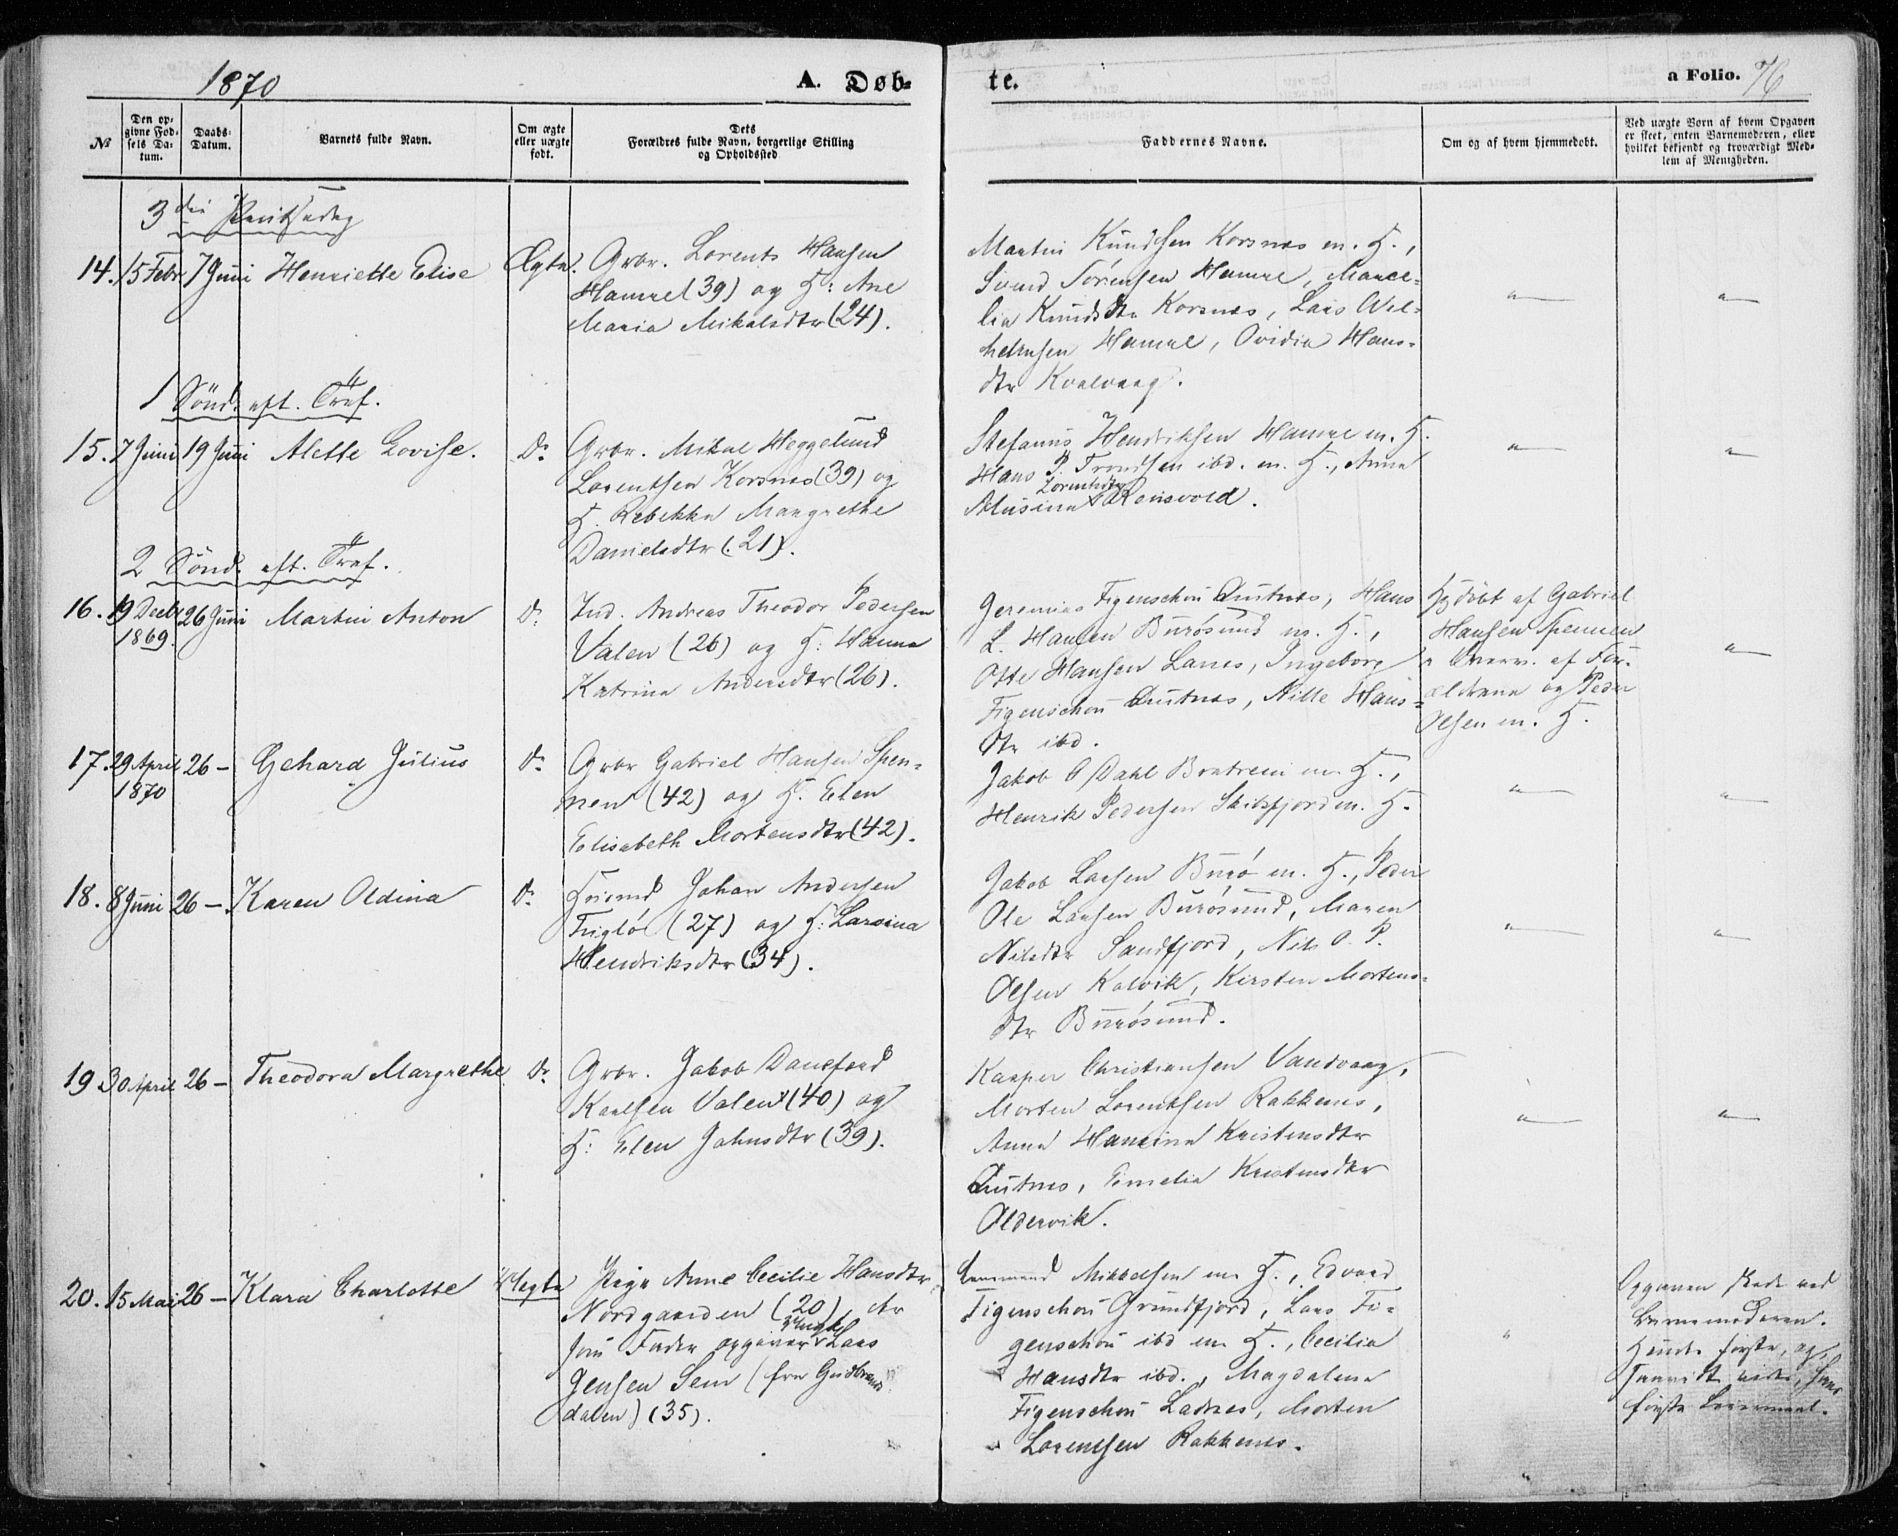 1870
A. Døb-
te.
a Folio. 76
№
Den op-
givne Fød-
sels Da-
tum.
Daabs-
Datum.
Barnets fulde Navn.
Om ægte
eller uægte
født.
Dets
Forældres fulde Navn, borgerlige Stilling
og Opholdssted
Faddernes Navne.
Om og af hvem hjemmedøbt.
Ved uægte Børn af hvem Opgaven
er skeet, enten Barnemoderen, eller
hvilket bekjendt og troværdigt Med-
lem af Menigheden.
3
14. 15 Febr. 7 Juni Henriette Elise Ægte.
Grbr. Lorents Hansen
Hamre (39) og H: Ane
Maria Mikalsdtr (24).
Martin Knudsen Korsnes m. H.,
Svend Sørensen Hamre, Marce-
lia Knudsdtr Korsnes, Lars Wil-
helmsen Hamre, Ovidia Hans-
dtr Kvalvaag.
" "
1 Sönd. eft. Tref.
15. 7 Juni 19 Juni Alette Lovise. Do
Grbr. Mikal Heggelund
Lorentsen Korsnes (39) og
H. Rebekka Margrethe
Danielsdtr (21).
Stefanus Hendriksen Hamre m. H.
Hans P. Trondsen ibd. m. H., Anna
Lorentsdtr
Reinsvold.
" "
2 Sönd. eft. Tref.
16. 19 Decbr 26 Juni Martin Anton Do
1869.
Ind. Andreas Theodor Pedersen
Valen (26) og H: Hanna
Katrina Andersdtr (26).
Jeremias Figenschou Skutnes, Hans
L. Hansen Burøsund m. H.,
Otte Hansen Lanes, Ingeborg
Figenschou Skutnes, Nille Hans-
dtr ibd.
Hjdöbt af Gabriel
Hansen Spennen
i Overv. af For-
ældrene og Peder
Olsen m. H.
"
17. 29 April 26 – Gehard Julius Do
1870
Grbr Gabriel Hansen Spen-
nen (42) og H. Elen
Elisabeth Mortensdtr (42).
Jakob C Dahl Bratrein m. H.,
Henrik Pedersen Skitsfjord m. H.
" "
18. 8 Juni 26 – Karen Oldina Do
Huusmd Johan Andersen
Fugló (27) og H: Larsina
Hendriksdtr (34).
Jakob Larsen Burø m. H., Peder
Ole Larsen Burøsund, Maren
Nilsdtr Sandfjord, Nils O. P.
Olsen Kalvik, Kirsten Mortens-
dtr Burøsund.
" "
19 30 April 26 – Theodora Margrethe Do
Grbr. Jakob Danefærd
Karlsen Valen (40) og
H: Elen Johnsdtr (39).
Kasper Christiansen Vandvaag,
Morten Lorentsen Rakkenes,
Anna Hansina Kristensdtr
Skutnes, Emelia Kristensdtr
Oldervik.
" "
20. 15 Mai 26 – Klara Charlotte Uægte
Pige Anne Cecilie Hansdtr
Nordgaarden (20), Ar
som Fader opgaves Lars
Jensen Sem (fra Gudbrands
dalen) (35).
Mikkelsen m. H., Edvard
Figenschou Grundfjord, Lars Fi-
genschou ibd m. H., Cecilia
Hansdtr ibd., Magdalena
Figenschou Ladnes, Morten
Lorentsen Rakkenes.
"
Opgaven skede ved
Barnemoderen.
Hendes første, og,
saavidt vides, hans
første Leiermaal.